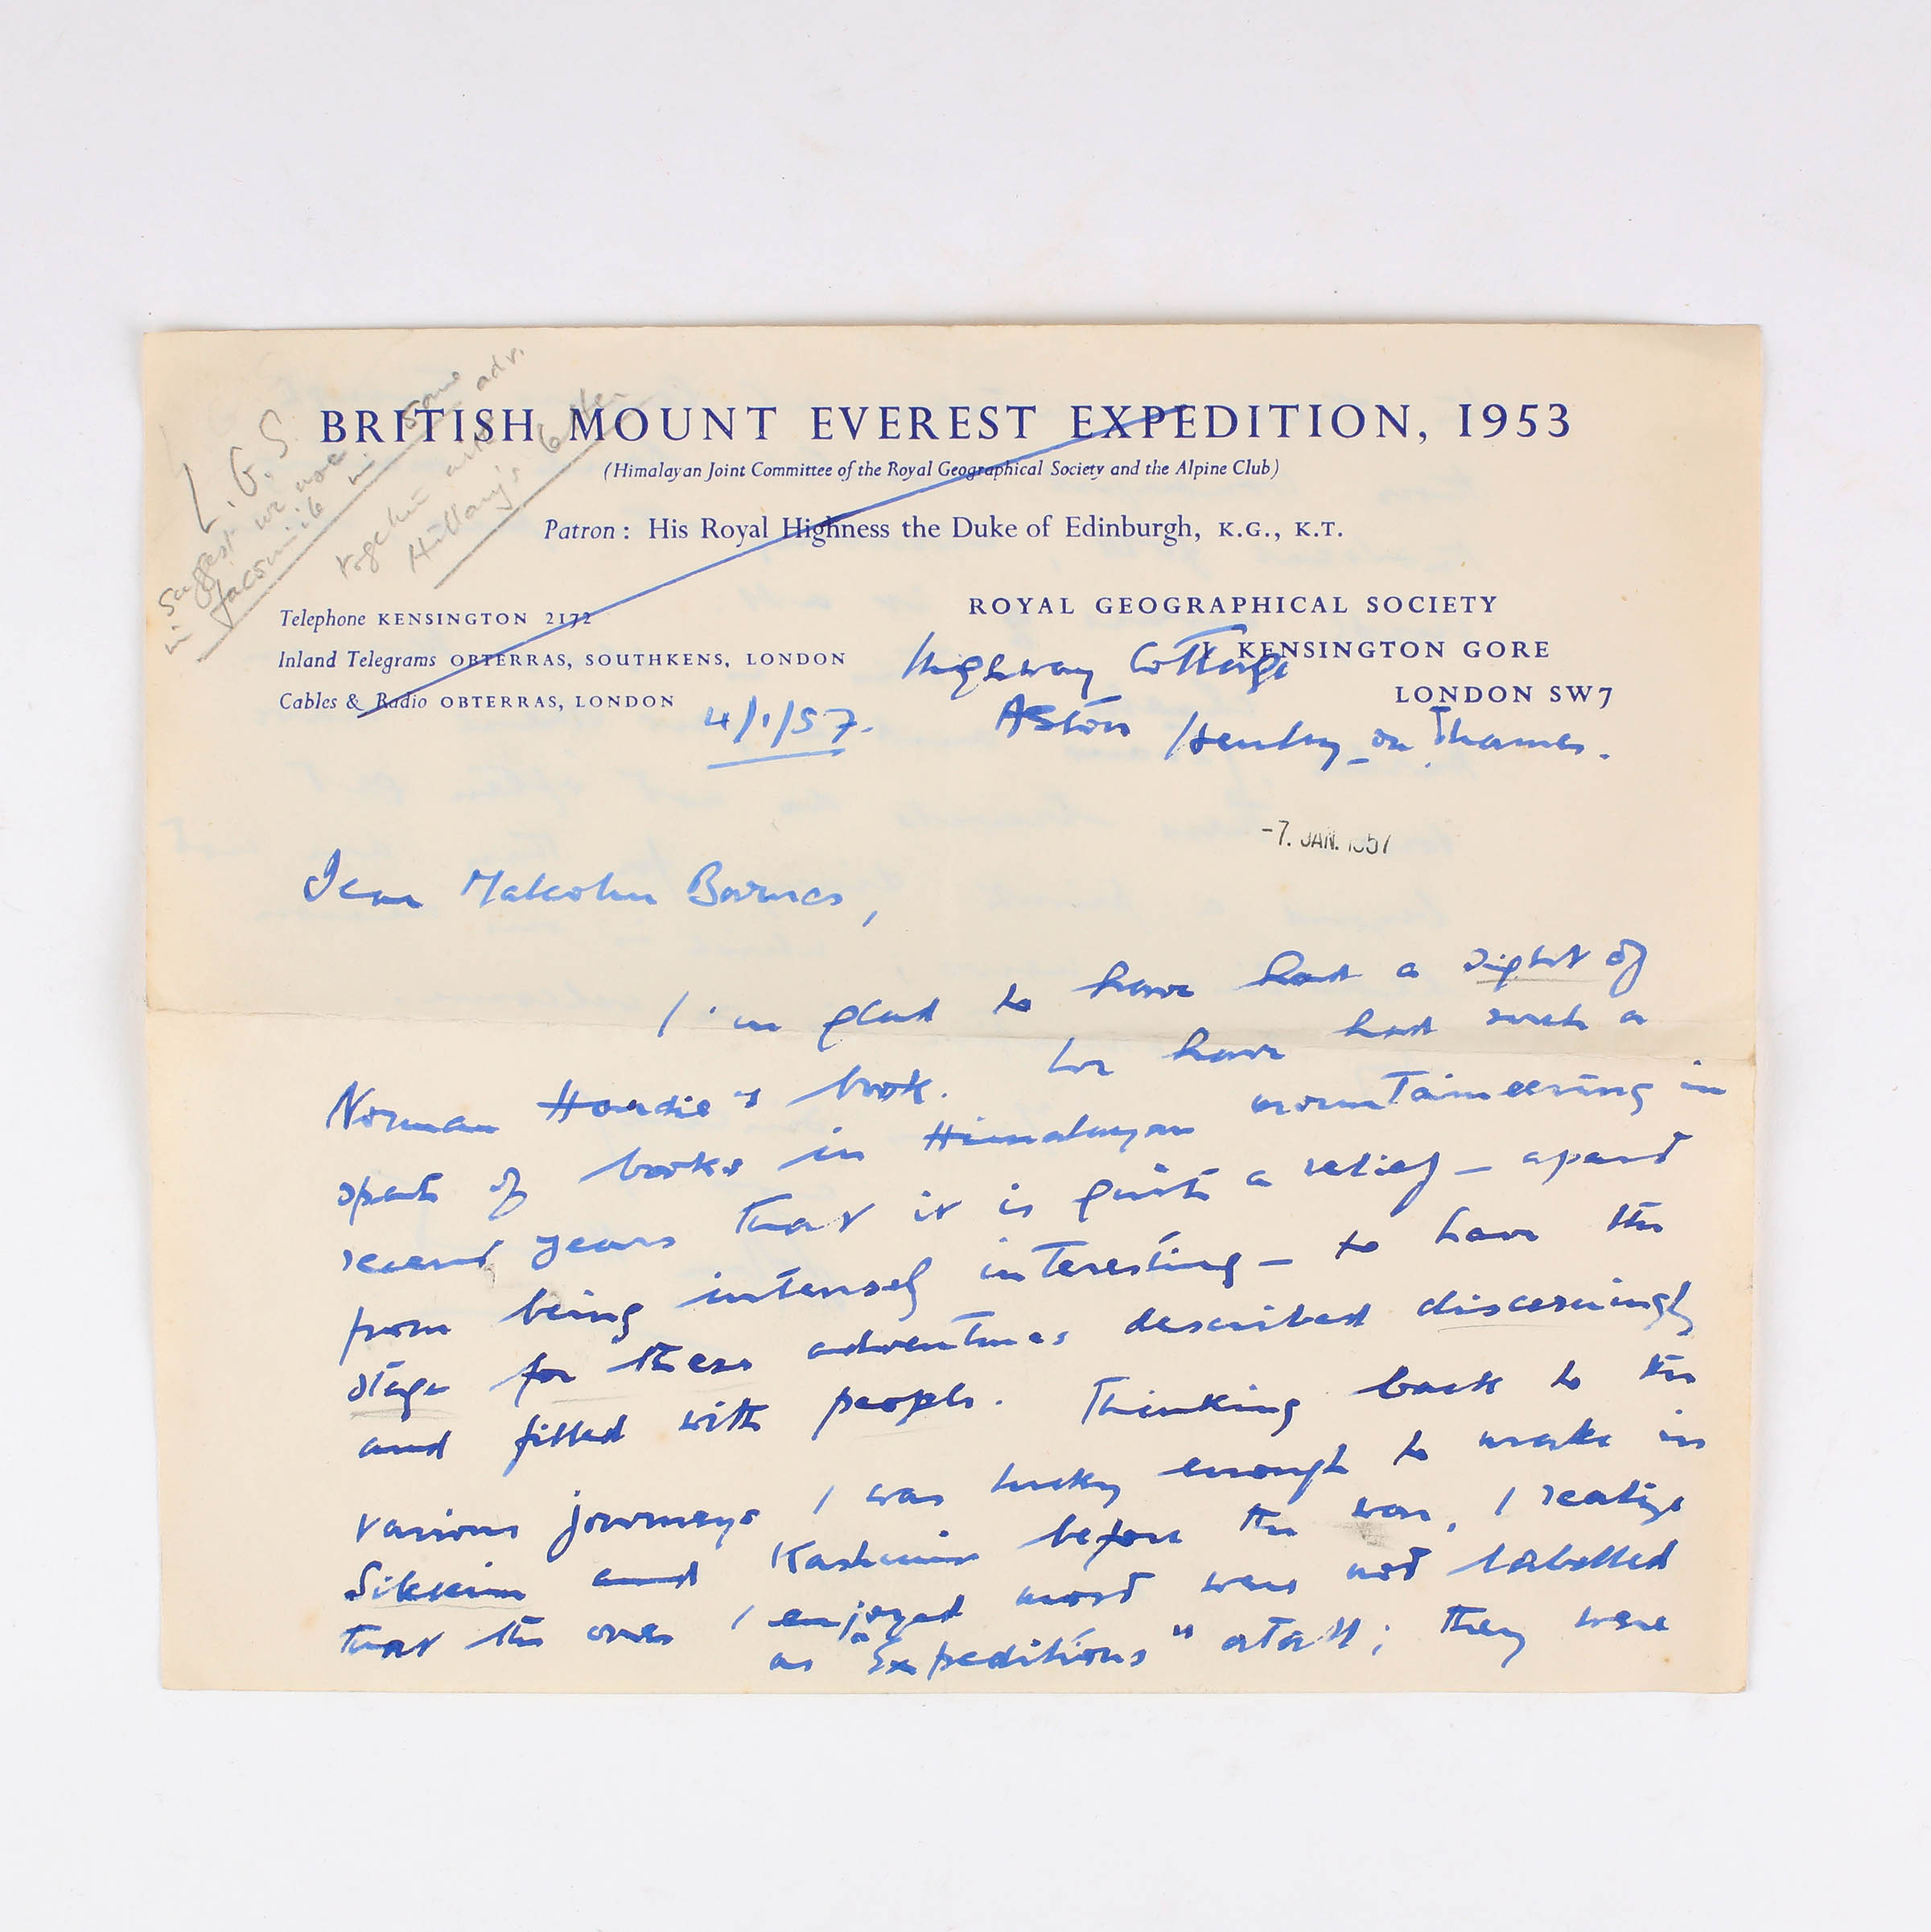 L.G.S.
suggest we use
in facsimile in some adv.
together with
Hillary's letter
BRITISH MOUNT EVEREST EXPEDITION, 1953
(Himalayan Joint Committee of the Royal Geographical Society and the Alpine Club)
Patron: His Royal Highness the Duke of Edinburgh, K.G., K.T.
Telephone KENSINGTON 2172
Inland Telegrams OBTERRAS, SOUTHKENS, LONDON
Cables & Radio OBTERRAS, LONDON
ROYAL GEOGRAPHICAL SOCIETY
1 KENSINGTON GORE
LONDON SW7
Highway Cottage
Aston Henley-on-Thames.
4/1/57.
-7. JAN. 1957
Dear Malcolm Barnes,
I'm glad to have had a sight of
Norman Hardie's book. We have had such a
spate of books in Himalayan mountaineering in
recent years that it is quite a relief – apart
from being intensely interesting – to have the
stage for these adventures described discerningly
and filled with people. Thinking back to the
various journeys I was lucky enough to make in
Sikkim and Kashmir before the war, I realize
that the ones I enjoyed most were not labelled
as "Expeditions" at all; they were